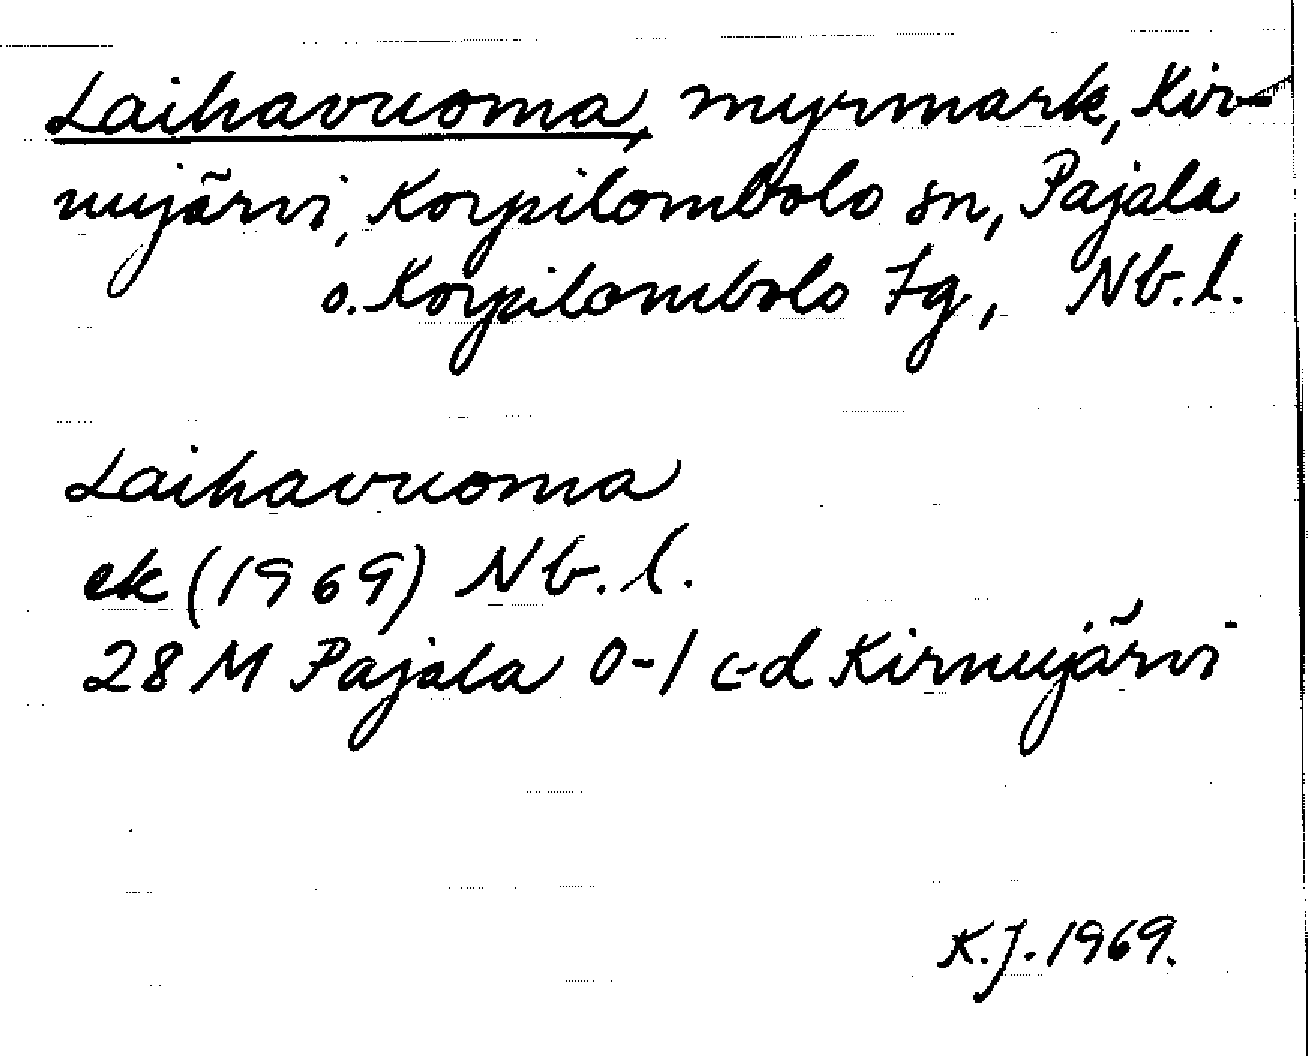 Laihavuoma, myrmark, Kir-
nujärvi, Korpilombolo sn, Pajala
o. Korpilombolo tg, Nb. l.
Laihavuoma
ek (1969) Nb. l.
28 M Pajala 0-1 c-d Kirnujärvi
K.J. 1969.